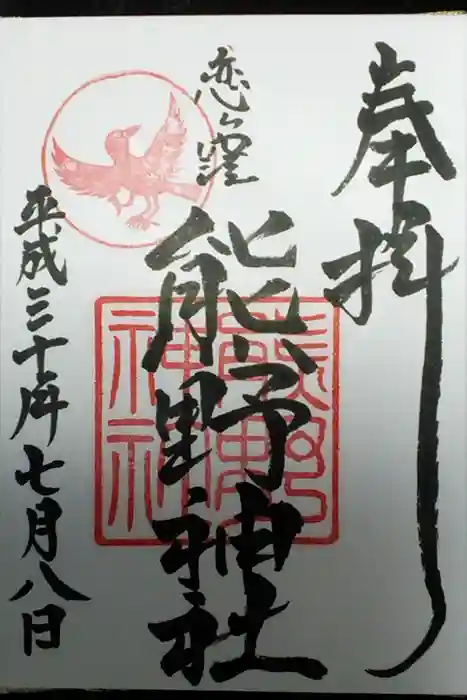 奉拝
恋ヶ窪
熊野神社
平成三十年七月八日
熊野
神社